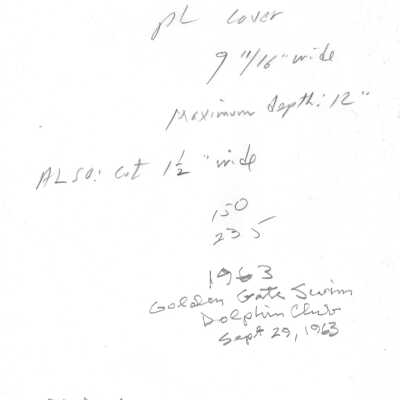 pL cover
9 11/16" wide
Maximum depth: 12"
ALSO: cut 1 1/2" wide
150
235
1963
Golden Gate Swim
Dolphin Club
Sept 29, 1963